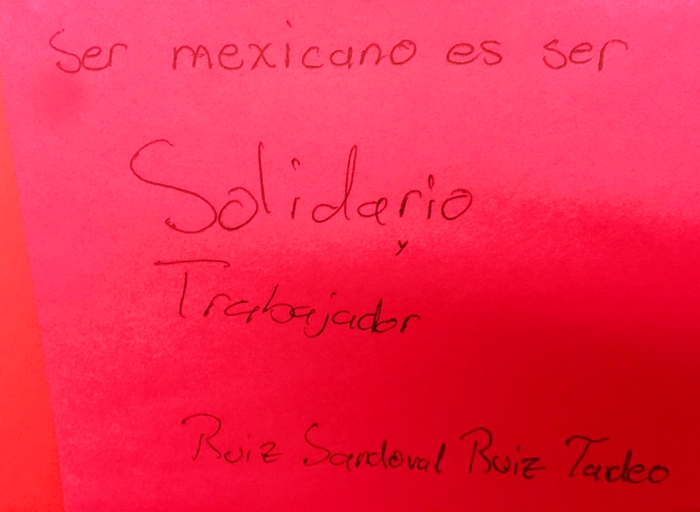 Ser mexicano es ser
Solidario
y
Trabajador
Ruiz Sandoval Ruiz Tadeo